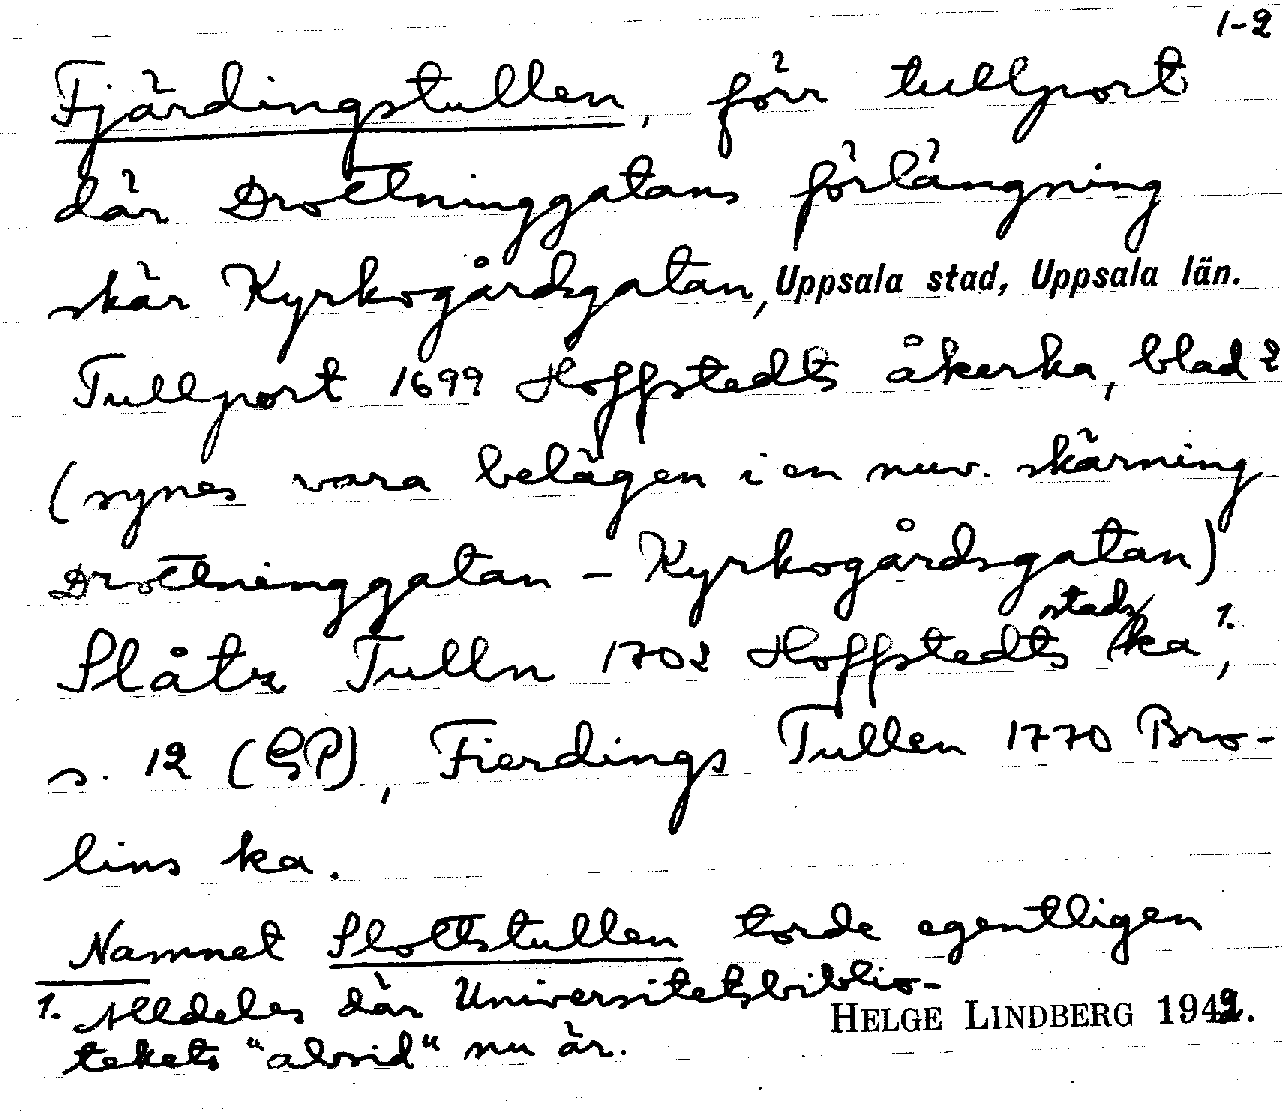 1-2
Fjärdingstullen, förr tullport
där Drottninggatans förlängning
skär Kyrkogårdsgatan, Uppsala stad, Uppsala län.
Tullport 1699 Hoffstedts åkerka, blad 2
(synes vara belägen i en nuv. skärning
Drottninggatan - Kyrkogårdsgatan)
stads
Slåtz Tulln 1702 Hoffstedts ka 1.,
s. 12 (GP), Fierdings Tullen 1770 Bro-
lins ka.
Namnet Slottstullen torde egentligen
1. Alldeles där Universitetsbiblio-
tekets "absid" nu är.
HELGE LINDBERG 1942.